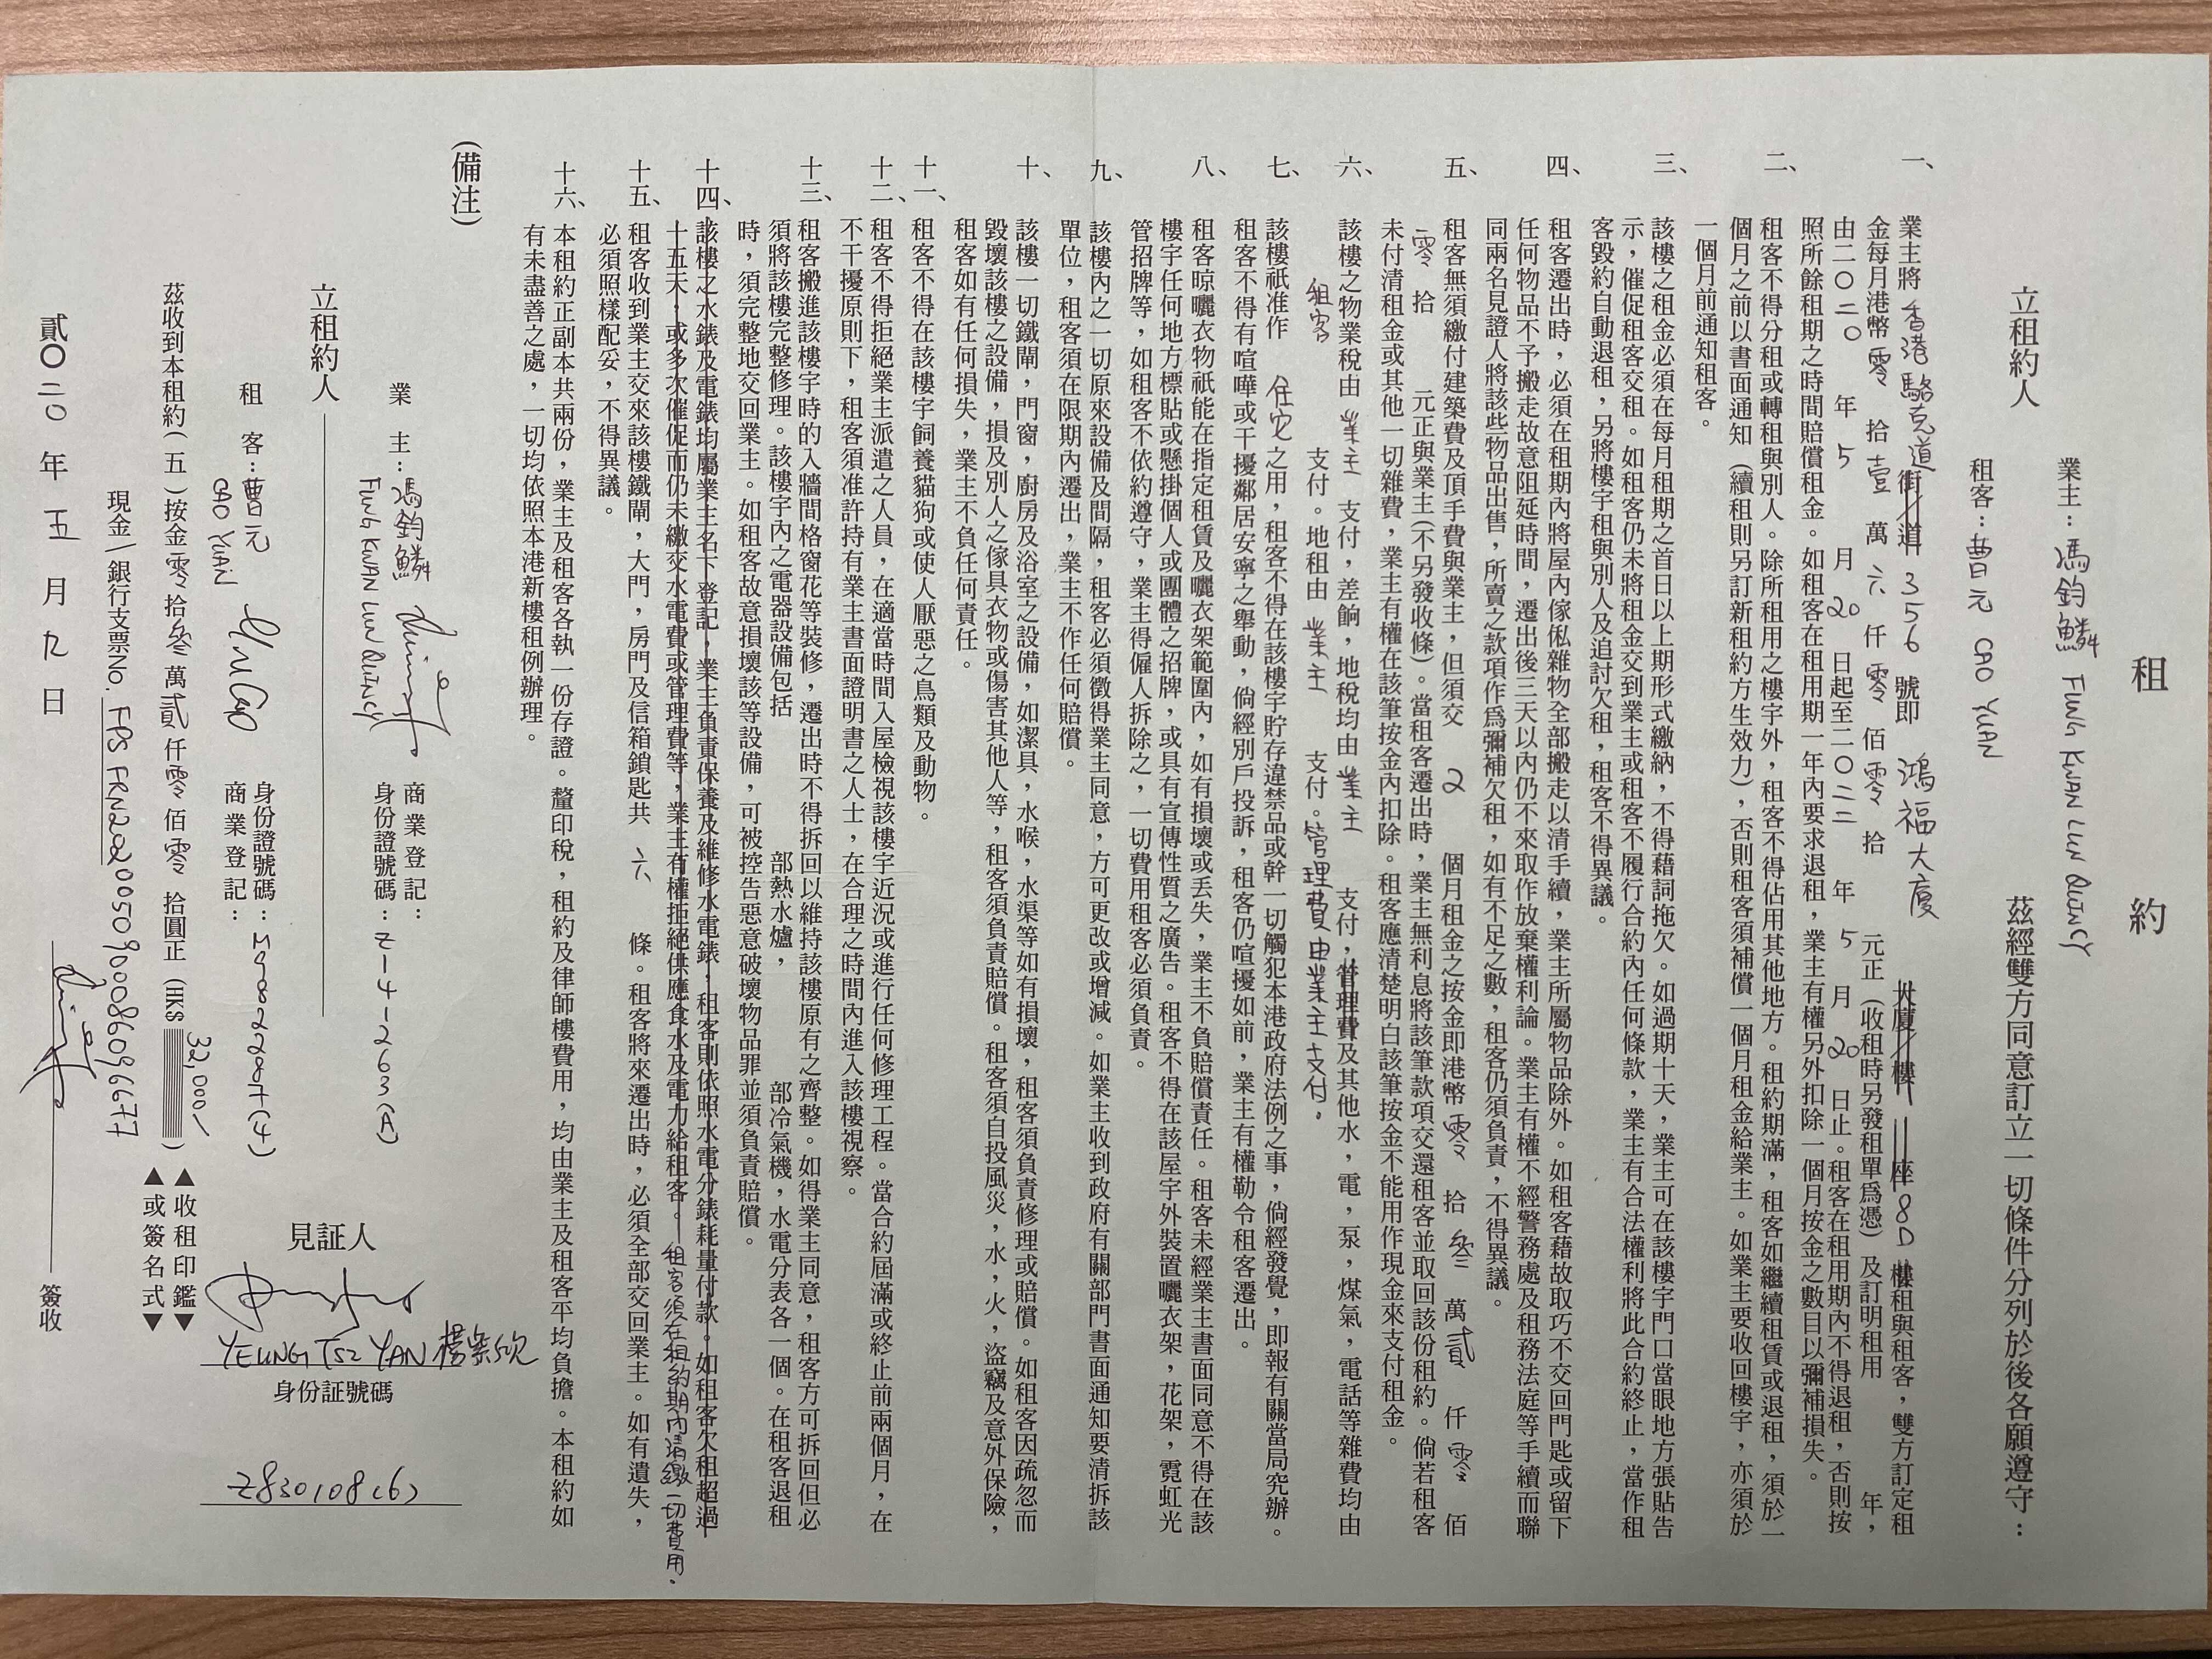 租約
立租約人
業主：馮鈞鱗 FUNG KWAN LUN QUINCY
租客：曹元 CAO YUAN
茲經雙方同意訂立一切條件分列於後各願遵守：
一、業主將香港駱克道街/道356號即鴻福大廈大廈/樓座8D樓租與租客，雙方訂定租
金每月港幣零拾壹萬六仟零佰零拾元正（收租時另發租單爲憑）及訂明租用年，
由二〇二〇年5月20日起至二〇二二年5月20日止。租客在租用期內不得退租，否則按
照所餘租期之時間賠償租金。如租客在租用期一年內要求退租，業主有權另外扣除一個月按金之數目以彌補損失。
二、租客不得分租或轉租與別人。除所租用之樓宇外，租客不得佔用其他地方。租約期滿，租客如繼續租賃或退租，須於一
個月之前以書面通知（續租則另訂新租約方生效力），否則租客須補償一個月租金給業主。如業主要收回樓宇，亦須於
一個月前通知租客。
三、該樓之租金必須在每月租期之首日以上期形式繳納，不得藉詞拖欠。如過期十天，業主可在該樓宇門口當眼地方張貼告
示，催促租客交租。如租客仍未將租金交到業主或租客不履行合約內任何條款，業主有合法權利將此合約終止，當作租
客毀約自動退租，另將樓宇租與別人及追討欠租，租客不得異議。
四、租客遷出時，必須在租期內將屋內傢俬雜物全部搬走以清手續，業主所屬物品除外。如租客藉故取巧不交回門匙或留下
任何物品不予搬走故意阻延時間，遷出後三天以內仍不來取作放棄權利論。業主有權不經警務處及租務法庭等手續而聯
同兩名見證人將該些物品出售，所賣之款項作爲彌補欠租，如有不足之數，租客仍須負責，不得異議。
五、租客無須繳付建築費及頂手費與業主，但須交2個月租金之按金即港幣零拾叁萬貳仟零佰
零拾元正與業主（不另發收條）。當租客遷出時，業主無利息將該筆款項交還租客並取回該份租約。倘若租客
未付清租金或其他一切雜費，業主有權在該筆按金內扣除。租客應清楚明白該筆按金不能用作現金來支付租金。
六、該樓之物業稅由業主支付，差餉，地稅均由業主支付，管理費及其他水，電，泵，煤氣，電話等雜費均由
租客支付。地租由業主支付。管理費由業主支付。
七、該樓祇准作住宅之用，租客不得在該樓宇貯存違禁品或幹一切觸犯本港政府法例之事，倘經發覺，即報有關當局究辦。
租客不得有喧嘩或干擾鄰居安寧之舉動，倘經別戶投訴，租客仍喧擾如前，業主有權勒令租客遷出。
八、租客晾曬衣物祇能在指定租賃及曬衣架範圍內，如有損壞或丟失，業主不負賠償責任。租客未經業主書面同意不得在該
樓宇任何地方標貼或懸掛個人或團體之招牌，或具有宣傳性質之廣告。租客不得在該屋宇外裝置曬衣架，花架，霓虹光
管招牌等，如租客不依約遵守，業主得僱人拆除之，一切費用租客必須負責。
九、該樓內之一切原來設備及間隔，租客必須徵得業主同意，方可更改或增減。如業主收到政府有關部門書面通知要清拆該
單位，租客須在限期內遷出，業主不作任何賠償。
十、該樓一切鐵閘，門窗，廚房及浴室之設備，如潔具，水喉，水渠等如有損壞，租客須負責修理或賠償。如租客因疏忽而
毀壞該樓之設備，損及別人之傢具衣物或傷害其他人等，租客須負責賠償。租客須自投風災，水，火，盜竊及意外保險，
租客如有任何損失，業主不負任何責任。
十一、租客不得在該樓宇飼養貓狗或使人厭惡之鳥類及動物。
十二、租客不得拒絕業主派遣之人員，在適當時間入屋檢視該樓宇近況或進行任何修理工程。當合約屆滿或終止前兩個月，在
不干擾原則下，租客須准許持有業主書面證明書之人士，在合理之時間內進入該樓視察。
十三、租客搬進該樓宇時的入牆間格窗花等裝修，遷出時不得拆回以維持該樓原有之齊整。如得業主同意，租客方可拆回但必
須將該樓完整修理。該樓宇內之電器設備包括部熱水爐，部冷氣機，水電分表各一個。在租客退租
時，須完整地交回業主。如租客故意損壞該等設備，可被控告惡意破壞物品罪並須負責賠償。
十四、該樓之水錶及電錶均屬業主名下登記，業主負責保養及維修水電錶，租客則依照水電分錶耗量付款。如租客欠租超過
十五天，或多次催促而仍未繳交水電費或管理費等，業主有權拒絕供應食水及電力給租客。租客須在租約期內清繳一切費用。
十五、租客收到業主交來該樓鐵閘，大門，房門及信箱鎖匙共六條。租客將來遷出時，必須全部交回業主。如有遺失，
必須照樣配妥，不得異議。
十六、本租約正副本共兩份，業主及租客各執一份存證。釐印稅，租約及律師樓費用，均由業主及租客平均負擔。本租約如
有未盡善之處，一切均依照本港新樓租例辦理。
（備注）
立租約人
業主：馮鈞鱗
FUNG KWAN LUN QUINCY
商業登記：
身份證號碼：Z-4-263(A)
租客：曹元
CAO YUAN
身份證號碼：M9082287(4)
商業登記：
見証人
YEUNG TSZ YAN
身份証號碼
Z830108(6)
茲收到本租約（五）按金零拾叁萬貳仟零佰零拾圓正（HK$ 32,000/）
▲收租印鑑▼
▲或簽名式▼
現金/銀行支票No. FPS
簽收
貳〇二〇年五月九日